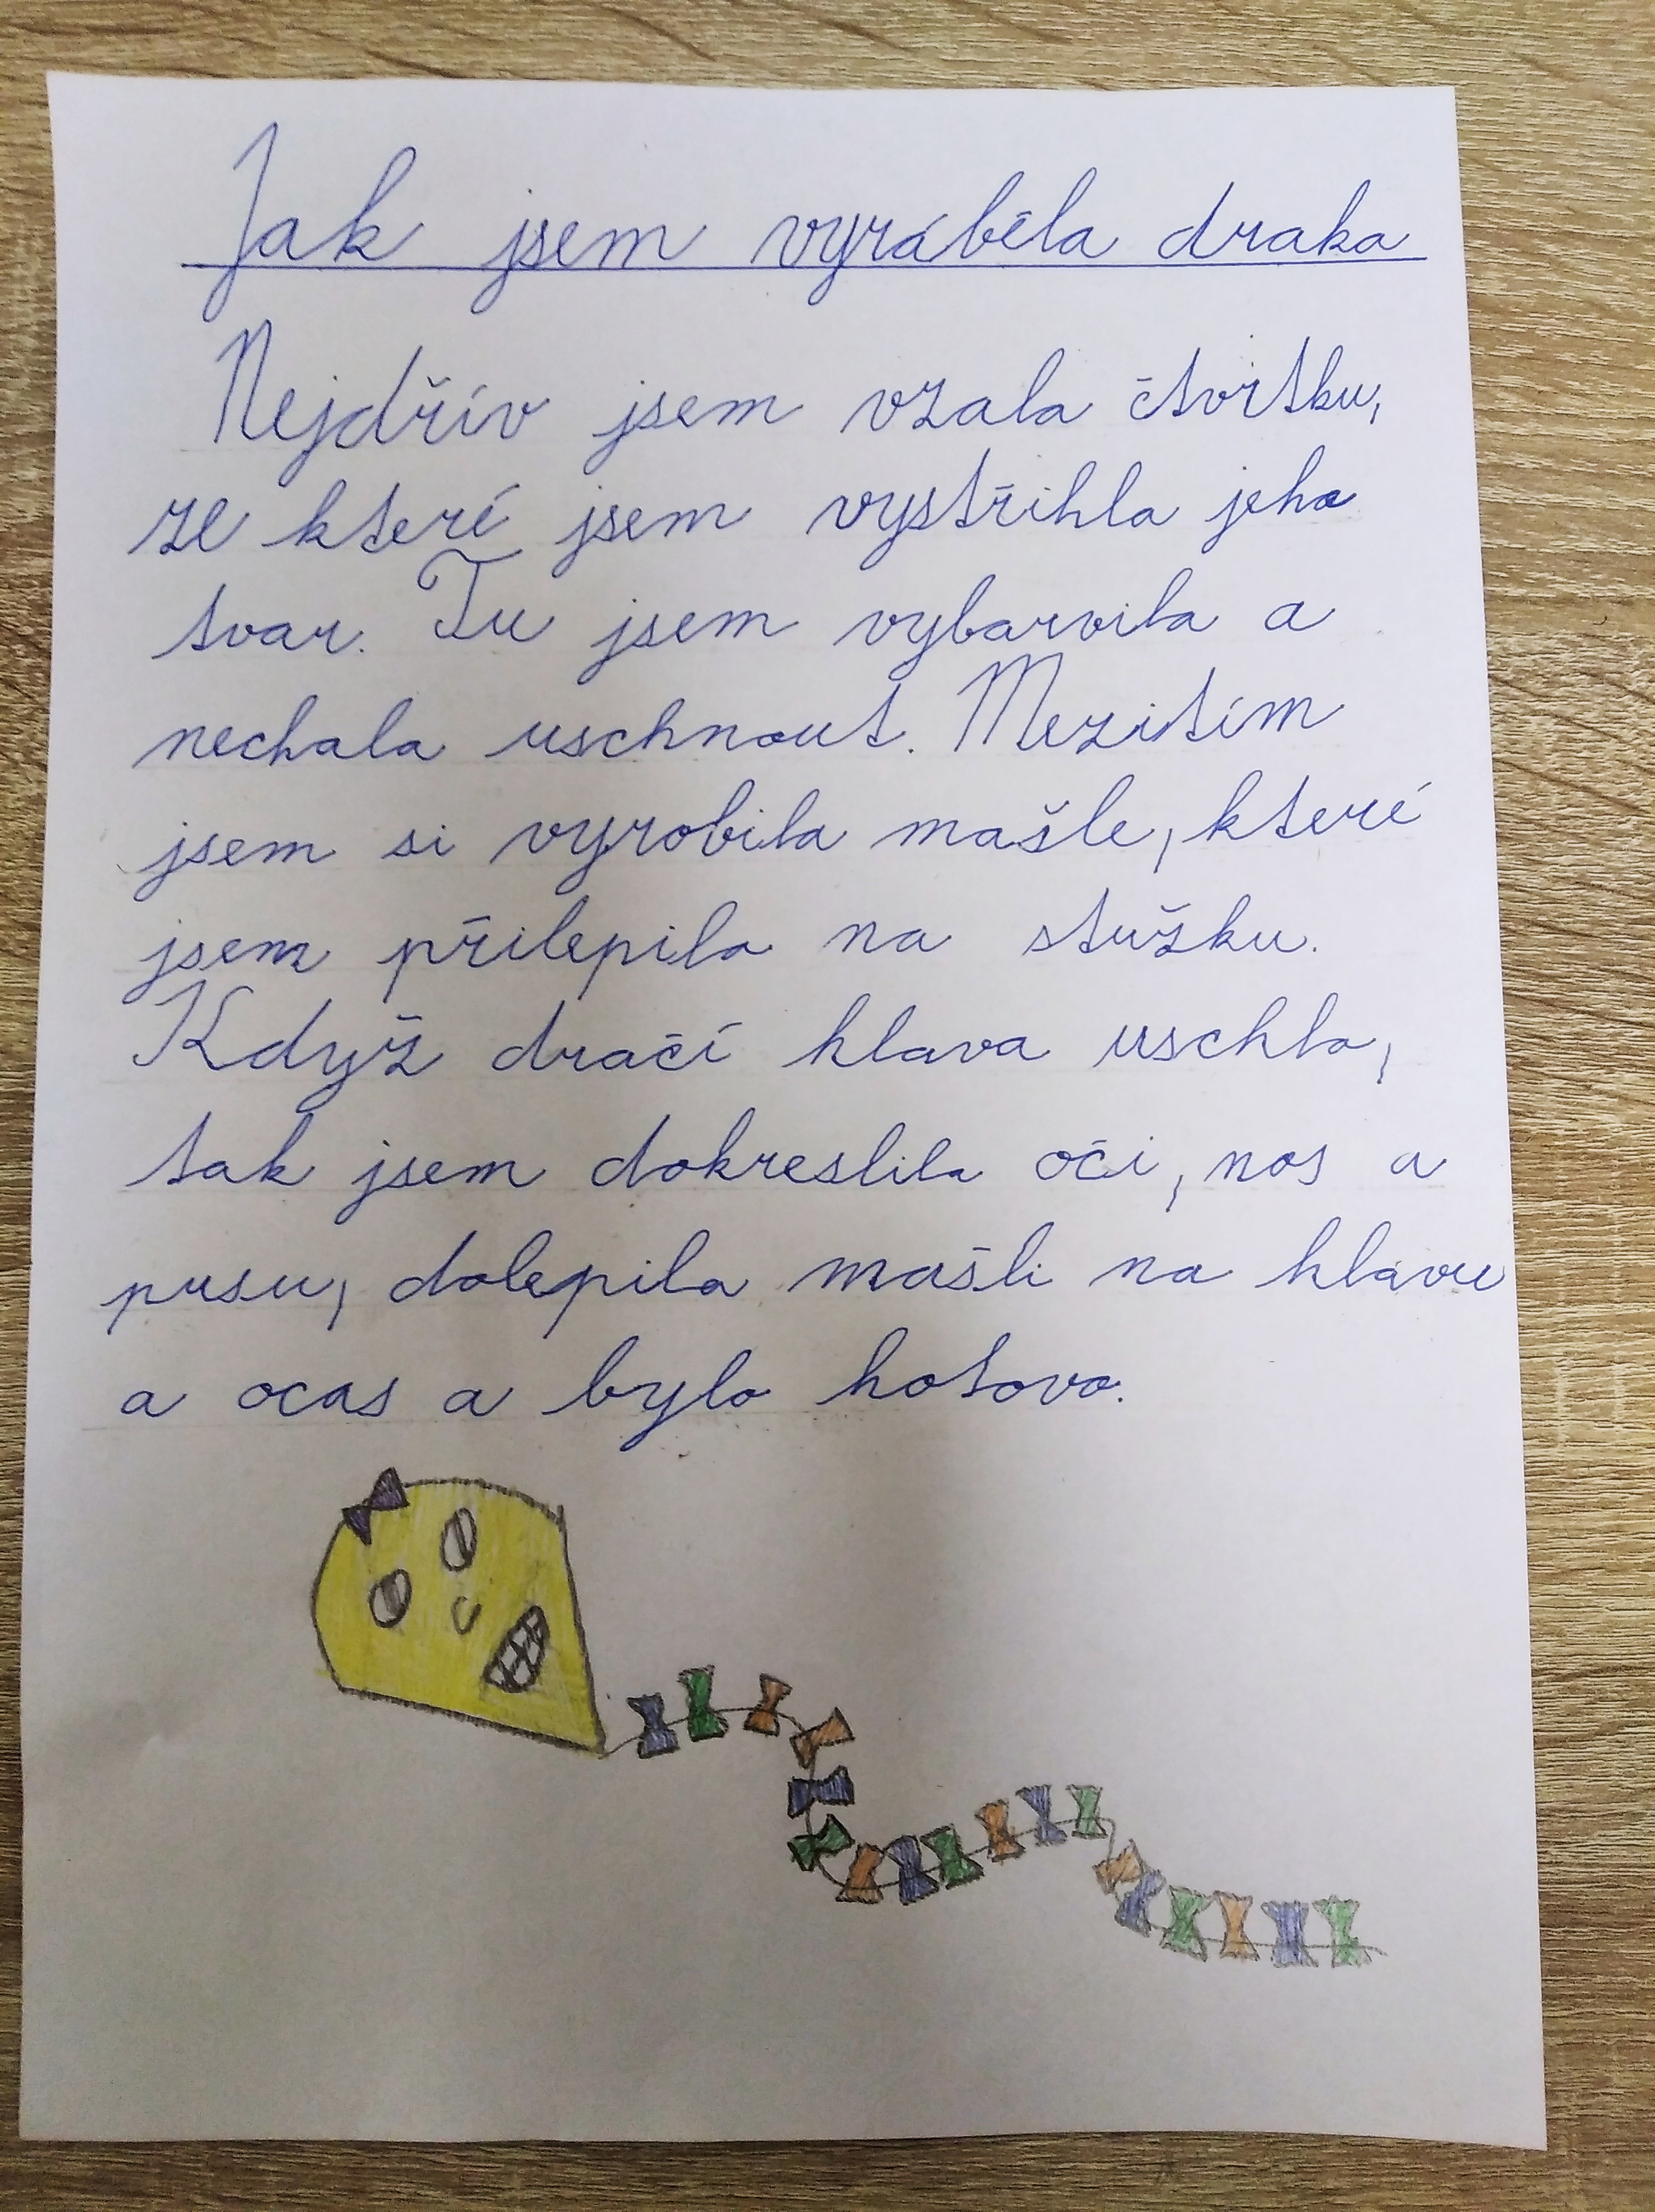 Jak jsem vyráběla draka
Nejdřív jsem vzala čtvrtku,
ze které jsem vystřihla jeho
tvar. Tu jsem vybarvila a
nechala uschnout. Mezitím
jsem si vyrobila mašle, které
jsem přilepila na stužku.
Když dračí hlava uschla,
tak jsem dokreslila oči, nos a
pusu, dolepila mašli na hlavu
a ocas a bylo hotovo.